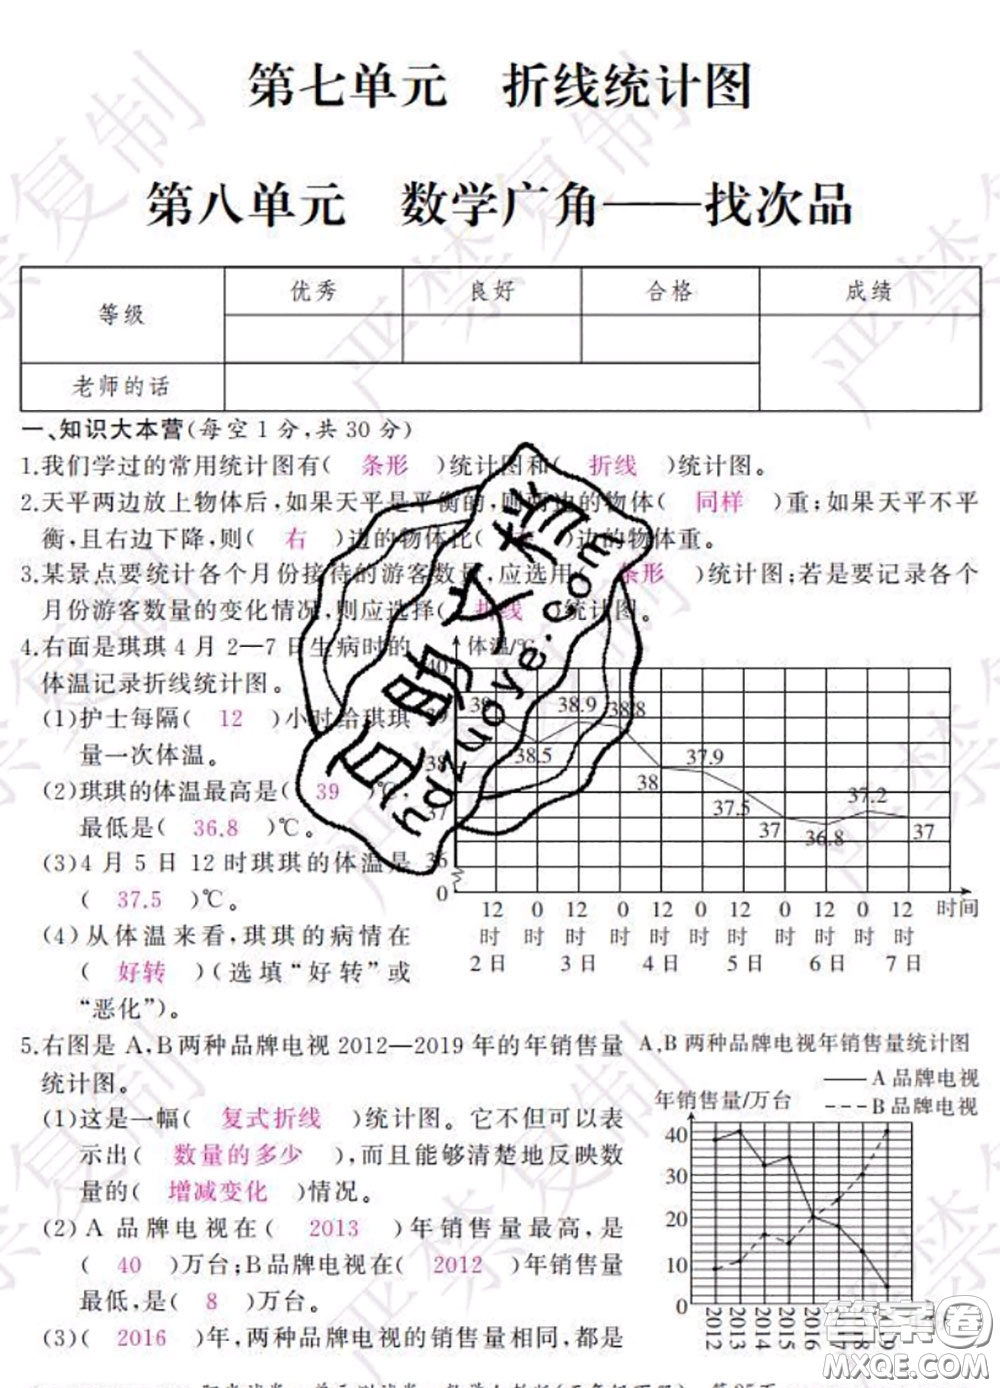 第七单元　折线统计图
第八单元　数学广角——找次品
等级 优秀 良好 合格 成绩
老师的话
一、知识大本营(每空1分,共30分)
1.我们学过的常用统计图有( 条形 )统计图和( 折线 )统计图。
2.天平两边放上物体后,如果天平是平衡的,则两边的物体( 同样 )重;如果天平不平
衡,且右边下降,则( 右 )边的物体比( )边的物体重。
3.某景点要统计各个月份接待的游客数量,应选用( 条形 )统计图;若是要记录各个
月份游客数量的变化情况,则应选择( 折线 )统计图。
4.右面是琪琪4月2—7日生病时的
体温记录折线统计图。
(1)护士每隔( 12 )小时给琪琪
量一次体温。
(2)琪琪的体温最高是( 39 )℃,
最低是( 36.8 )℃。
(3)4月5日12时琪琪的体温是
( 37.5 )℃。
(4)从体温来看,琪琪的病情在
( 好转 )(选填“好转”或
“恶化”)。
体温/℃
40
39
38
37
36
0
39 38.5 38.9 38.8 38 37.9 37.5 37 36.8 37.2 37
12 0 12 0 12 0 12 0 12 0 12 时间
时 时 时 时 时 时 时 时 时 时 时
2日 3日 4日 5日 6日 7日
5.右图是A,B两种品牌电视2012—2019年的年销售量
统计图。
(1)这是一幅( 复式折线 )统计图。它不但可以表
示出( 数量的多少 ),而且能够清楚地反映数
量的( 增减变化 )情况。
(2)A品牌电视在( 2013 )年销售量最高,是
( 40 )万台;B品牌电视在( 2012 )年销售量
最低,是( 8 )万台。
(3)( 2016 )年,两种品牌电视的销售量相同,都是
A,B两种品牌电视年销售量统计图
A品牌电视
B品牌电视
年销售量/万台
40
30
20
10
0
2012 2013 2014 2015 2016 2017 2018 2019
严禁复制
答案圈
MXQE.COM
ydzuoye.com